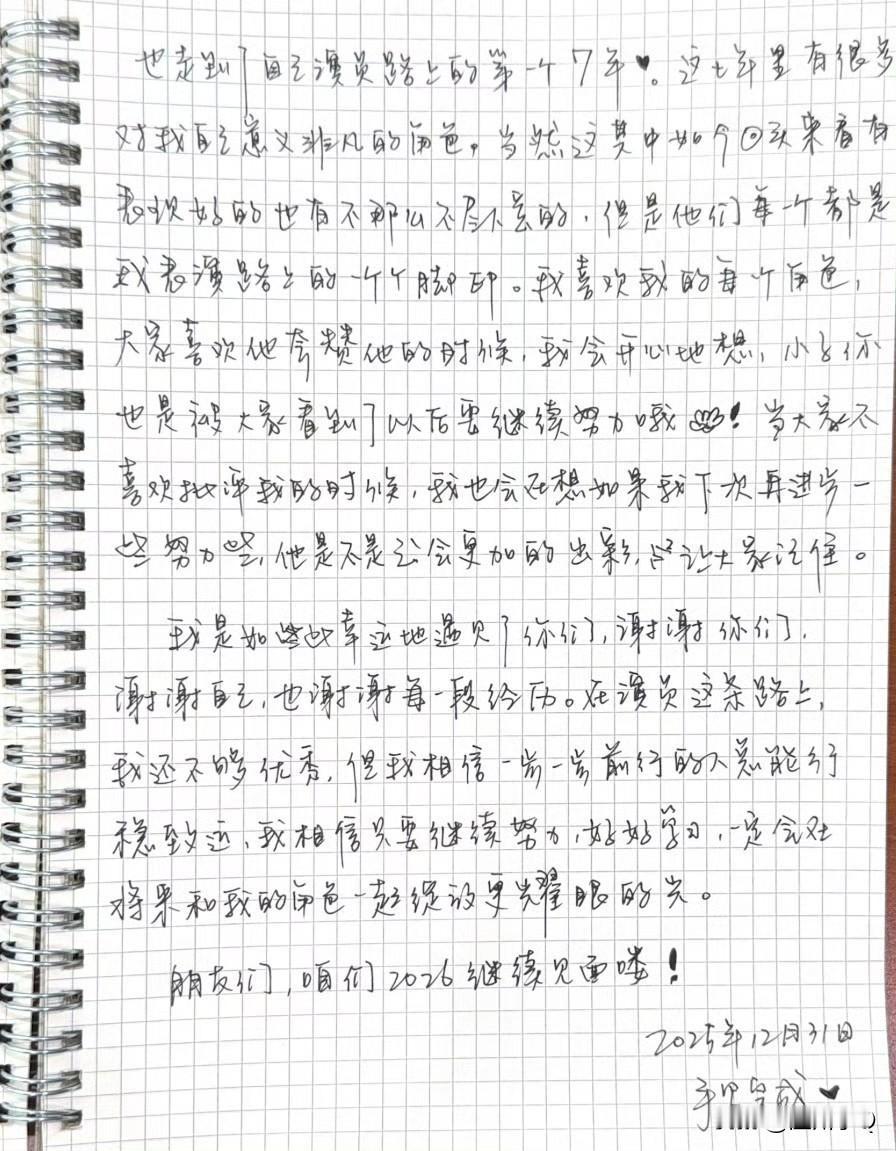 也走到了自己演员路上的第一个7年♥。这七年里有很多
对我自己意义非凡的角色。当然这其中如今回头来看有
表现好的也有不那么尽人意的，但是他们每一个都是
我表演路上的一个个脚印。我喜欢我的每个角色，
大家喜欢他夸赞他的时候，我会开心地想，小子你
也是被大家看到了以后要继续努力哦！当大家不
喜欢批评我的时候，我也会在想如果我下次再进步一
些努力些，他是不是会更加的出彩，让大家记住。
我是如此幸运地遇见了你们，谢谢你们，
谢谢自己，也谢谢每一段经历。在演员这条路上，
我还不够优秀，但我相信一步一步前行的人总能行
稳致远，我相信只要继续努力，好好学习，一定会在
将来和我的角色一起绽放更耀眼的光。
朋友们，咱们2026继续见面喽！
2025年12月31日